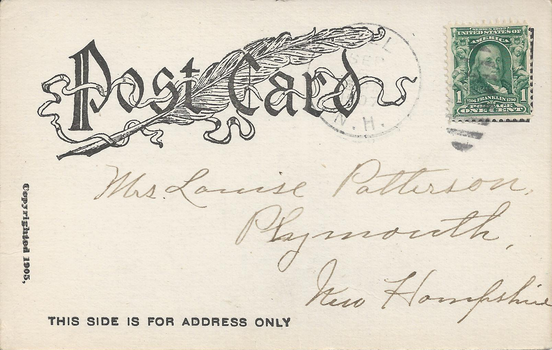 Post Card
SEP
N. H.
UNITED STATES OF
AMERICA
1 FRANKLIN 1
POSTAGE
ONE CENT
Mrs. Louise Patterson,
Plymouth,
New Hampshire
Copyrighted 1905.
THIS SIDE IS FOR ADDRESS ONLY